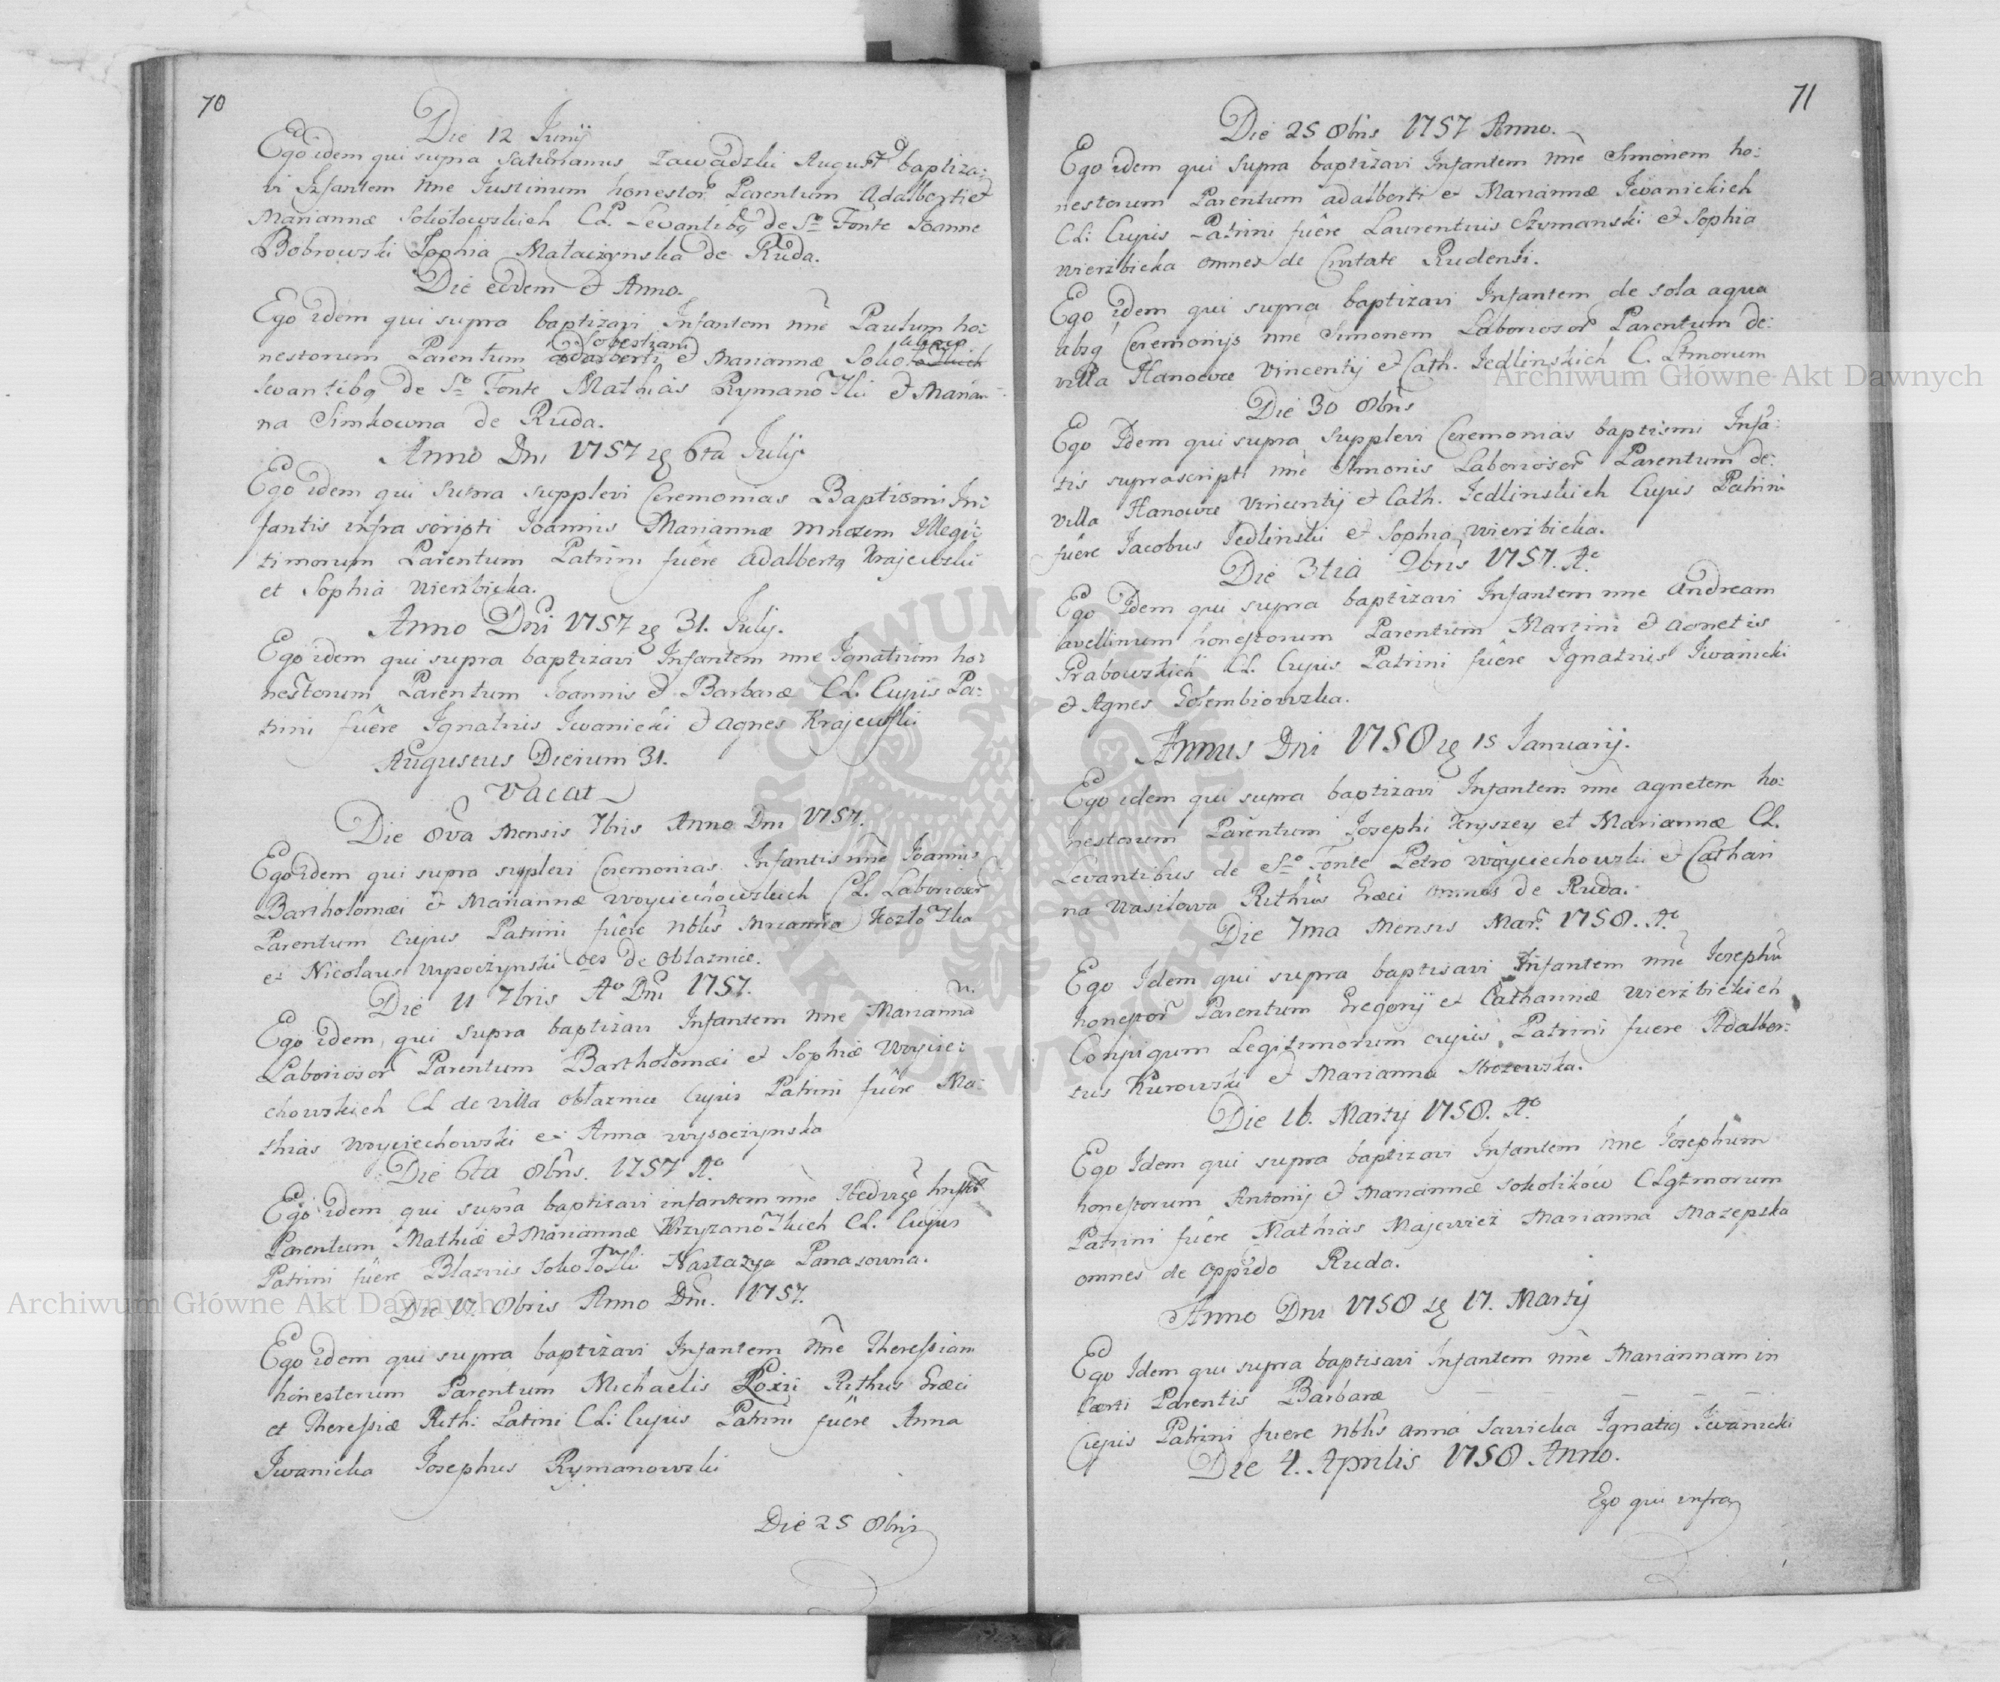 70
Die 12 Junij
Ego idem qui supra Saturianus Zawadzki August baptiza:
vi Infantem nne Justinum honestor Parentum Adalberti et
Mariannæ Sokołowskich CL. Levantibq de So Fonte Joanne
Bobrowski Sophia Małaczynska de Ruda.
Die eodem et Anno.
Ego idem qui supra baptizavi Infantem nne Paulum ho:
nestorum Parentum Sebestyani et Mariannæ Soko
levantibq de So Fonte Mathias Rymanowski et Marian=
na Simkowna de Ruda.
Anno Dni 1757 6ta Julij
Ego idem qui supra supplevi Ceremonias Baptismi In:
fantis infra scripti Joannis Mariannæ Illegi:
timorum Parentum Patrini fuêre Adalbertq Krajewski
et Sophia Wierzbicka.
Anno Dni 1757 31. Julij.
Ego idem qui supra baptizavi Infantem nne Ignatium ho:
nestorum Parentum Joannis et Barbaræ CL. Cujus Pa:
trini fuêre Ignatius Iwanicki et Agnes Krajewski
Augustus Dierum 31.
Vacat
Die 8va Mensis 7bris Anno Dni 1757.
Ego idem qui supra suplevi Ceremonias Infantis nne Joannis
Bartholomæi et Mariannæ Woyciechowskich CL. Laboriosor
Parentum cujus Patrini fuêre Nblis Kozłowska
et Nicolaus Wysoczynski oes de Obłaznice.
Die 11 7bris Ao Dni 1757.
Ego idem qui supra baptizavi Infantem nne Marianna
Laboriosor Parentum Bartholomæi et Sophiæ Woycie:
chowskich CL de villa Obłaznice Cujus Patrini fuêre Ma:
thias Woyciechowski et Anna Wysoczynska
Die 6ta 8bris. 1757 Ao
Ego idem qui supra baptisavi infantem nne Hedvige hnstor
Parentum Mathiæ et Mariannæ Krzyzanowskich CL. Cujus
Patrini fuêre Blazius Sokołowski Nastazya Panasowna.
Die 17. 8bris Anno Dni. 1757.
Ego idem qui supra baptizavi Infantem nne Theressiam
honestorum Parentum Michaelis Rithus Græci
et Theressiæ Rith: Latini CL: Cujus Patrini fuêre Anna
Iwanicka Josephus Rymanowski
Die 25 8bris
71
Die 25 8bris 1757 Anno.
Ego idem qui supra baptizavi Infantem nne Simonem ho:
nestorum Parentum Adalberti et Mariannæ Iwanickich
CL: Cujus Patrini fuêre Laurentius Szymanski et Sophia
Wierzbicka omnes de Civitate Rudensi.
Ego idem qui supra baptizavi Infantem de sola aqua
absq Ceremonijs nne Simonem Laboriosor Parentum de:
villa Hanowce Vincentij et Cath. Jedlinskich C. Ltmorum
Die 30 8bris
Ego Idem qui supra supplevi Ceremonias baptismi Infa:
tis suprascripti nne Simonis Laboriosor Parentum de:
villa Hanowce Vincentij et Cath. Jedlinskich Cujus Patrini
fuêre Jacobus Jedlinski et Sophia Wierzbicka.
Die 3tia 9bris 1757. Ao
Ego Idem qui supra baptizavi Infantem nne Andream
Avellinum honestorum Parentum Martini et Agnetis
Grabowskich CL. Cujus Patrini fuêre Ignatius Iwanicki
et Agnes Gołembiowska.
Annus Dni 1758 15 Januarij.
Ego idem qui supra baptizavi Infantem nne Agnetem ho:
nestorum Parentum Josephi Fryszey et Mariannæ CL.
Levantibus de So Fonte Petro Woyciechowski et Cathari
na Wasilowa Rithus Græci omnes de Ruda.
Die 7ma Mensis Mar. 1758. Ao
Ego Idem qui supra baptisavi Infantem nne Josephu
honestor Parentum Gregorij et Catharinæ Wierzbickich
Conjugum Legitimorum cujus Patrini fuere Adalber:
tus Kurowski et Marianna Mrozowska.
Die 16. Martij 1758. Ao
Ego Idem qui supra baptizavi Infantem nne Josephum
honestorum Antonij et Mariannæ Sokolików CLgtmorum
Patrini fuêre Mathias Majewicz Marianna Mazepska
omnes de Oppido Ruda.
Anno Dni 1758 17. Martij
Ego Idem qui supra baptisavi Infantem nne Mariannam in
Certi Parentis Barbaræ
Cujus Patrini fuere Nblis Anna Sawicka Ignatiq Iwanicki
Die 4. Aprilis 1758 Anno.
Ego qui infra
Archiwum Główne Akt Dawnych
Archiwum Główne Akt Dawnych
ARCHIWUM GŁÓWNE AKT DAWNYCH